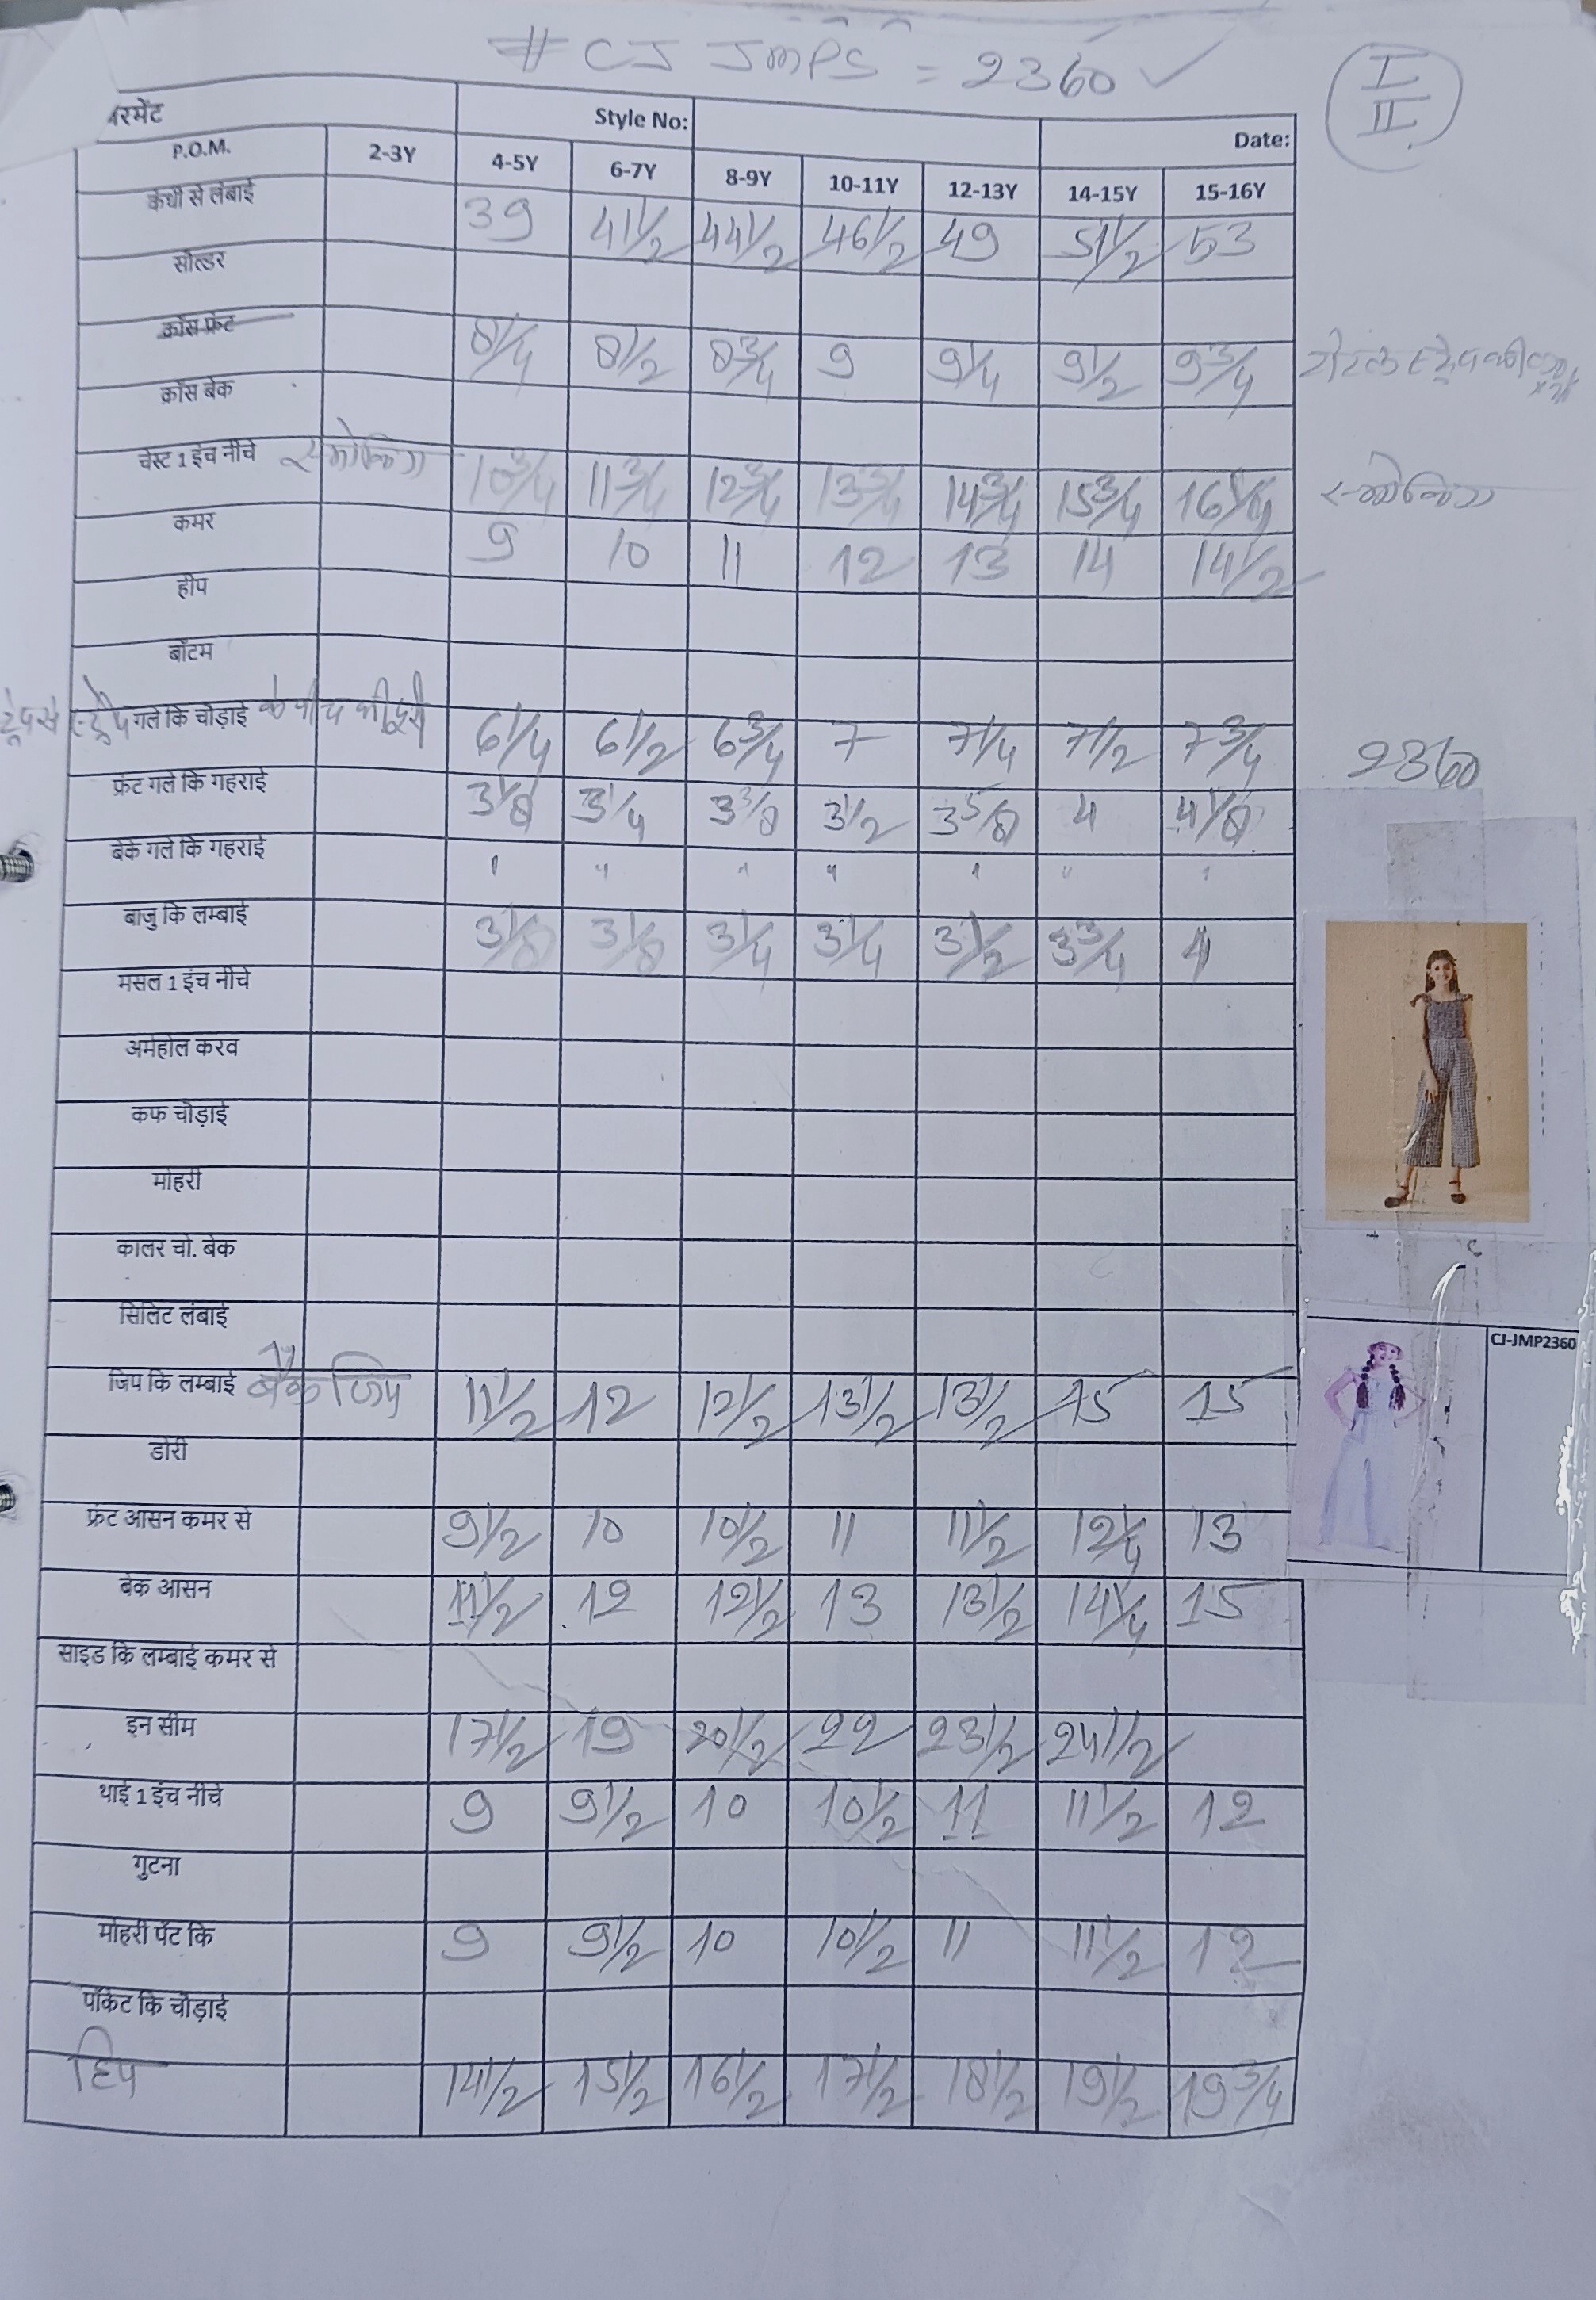 # CJ JMPS = 2360 ✓
I
II
रमेंट Style No: Date:
P.O.M. 2-3Y 4-5Y 6-7Y 8-9Y 10-11Y 12-13Y 14-15Y 15-16Y
कंधी से लंबाई 39 41 1/2 44 1/2 46 1/2 49 51 1/2 53
सोल्डर
क्रॉस फ्रंट 8 1/4 8 1/2 8 3/4 9 9 1/4 9 1/2 9 3/4
क्रॉस बेक
चेस्ट 1 इंच नीचे स्मोकिंग 10 3/4 11 3/4 12 3/4 13 3/4 14 3/4 15 3/4 स्मोकिंग
कमर 9 10 11 12 13 14 14 1/2
हीप
बॉटम
स्ट्रेप गले कि चोड़ाई के बीच की दूरी 6 1/4 6 1/2 6 3/4 7 7 1/4 7 1/2 7 3/4
2360
फ्रंट गले कि गहराई 3 1/8 3 1/4 3 3/8 3 1/2 3 5/8 4 4 1/8
बेक गले कि गहराई " " " " " " "
बाजु कि लम्बाई 3 1/8 3 1/8 3 1/4 3 1/4 3 1/2 3 3/4 4
मसल 1 इंच नीचे
अर्महोल करव
कफ चोड़ाई
मोहरी
कालर चो. बेक
सिलिट लंबाई
CJ-JMP2360
जिप कि लम्बाई बैक जिप 11 1/2 12 12 1/2 13 1/2 13 1/2 15 15
डोरी
फ्रंट आसन कमर से 9 1/2 10 10 1/2 11 11 1/2 12 1/4 13
बेक आसन 11 1/2 12 12 1/2 13 13 1/2 14 1/4 15
साइड कि लम्बाई कमर से
इन सीम 17 1/2 19 20 1/2 22 23 1/2 24 1/2
थाई 1 इंच नीचे 9 9 1/2 10 10 1/2 11 11 1/2 12
गुटना
मोहरी पेंट कि 9 9 1/2 10 10 1/2 11 11 1/2 12
पॉकेट कि चौड़ाई
हिप 14 1/2 15 1/2 16 1/2 17 1/2 18 1/2 19 1/2 19 3/4